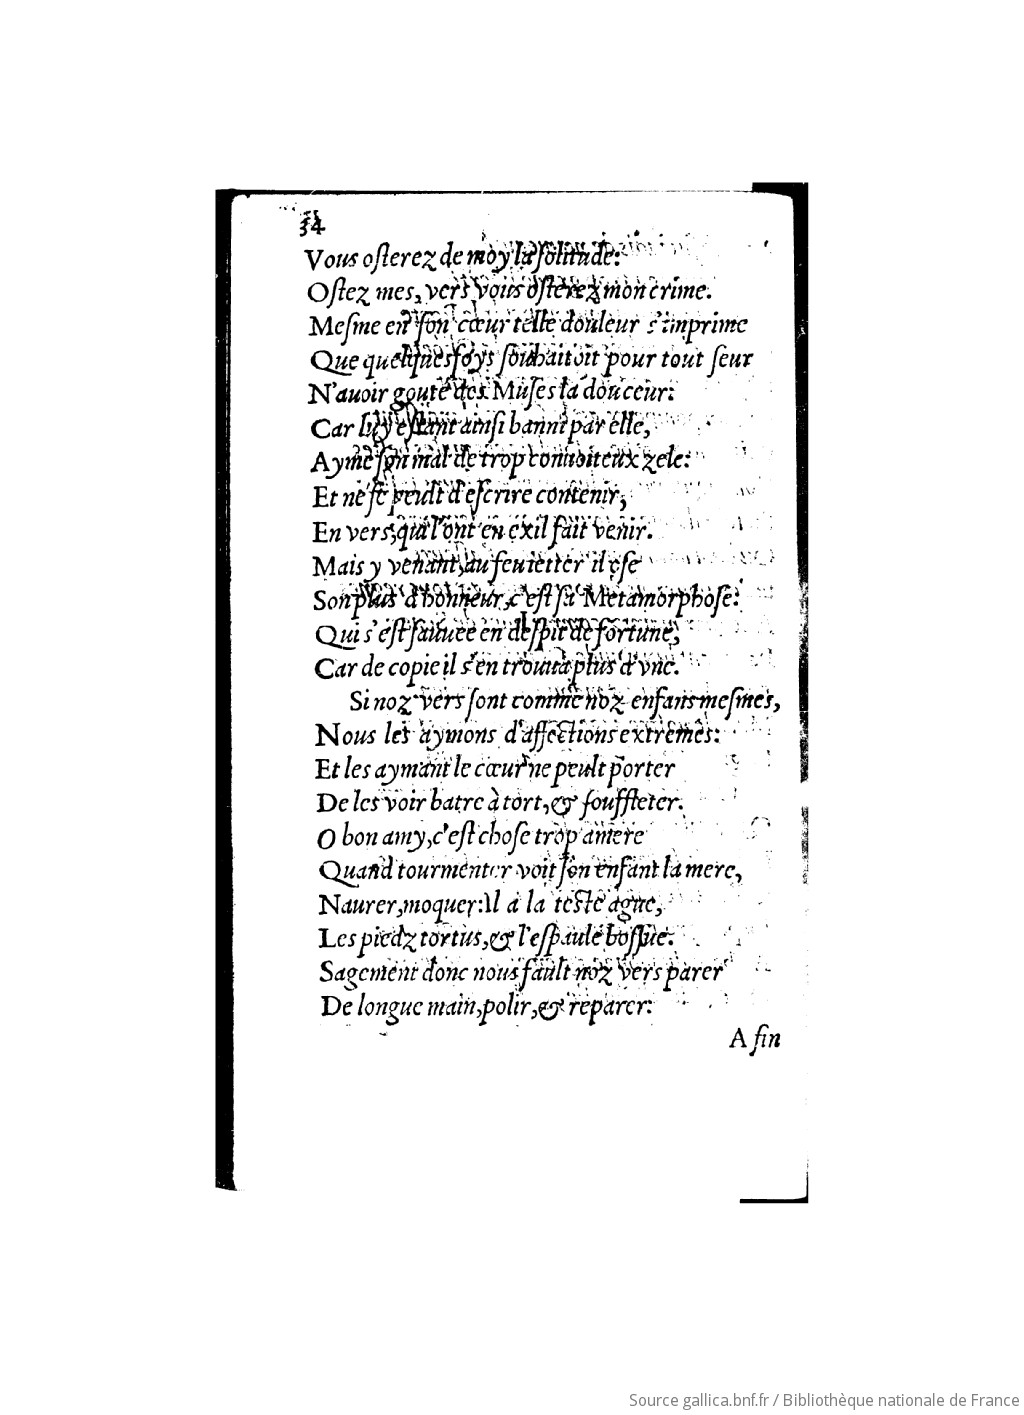 34
Vous oſterez de moy la ſolitude:
Oſtez mes, vers vous oſterez mon crime.
Meſme en ſon cœur telle douleur s'imprime
Que quelquesfoys ſouhaitoit pour tout ſeur
N'auoir gouté des Muſes la douceur:
Car luy eſtant ainſi banni par elle,
Ayme ſon mal de trop conuoiteux zele:
Et ne ſe peult d'eſcrire contenir,
En vers, qui l'ont en exil fait venir.
Mais y venant, au feu ietter il oſe
Son plus d'honneur, c'eſt ſa Metamorphoſe:
Qui s'eſt ſauuée en deſpit de fortune,
Car de copie il s'en trouua plus d'vne.
Si noz vers ſont comme noz enfans meſmes,
Nous les aymons d'affections extrémes:
Et les aymant le cœur ne peult porter
De les voir batre à tort, & ſouffleter.
O bon amy, c'eſt choſe trop amere
Quand tourmenter voit ſon enfant la mere,
Naurer, moquer: Il a la teſte ague,
Les piedz tortus, & l'eſpaule boſſue.
Sagement donc nous fault noz vers parer
De longue main, polir, & reparer:
A fin
Source gallica.bnf.fr / Bibliothèque nationale de France